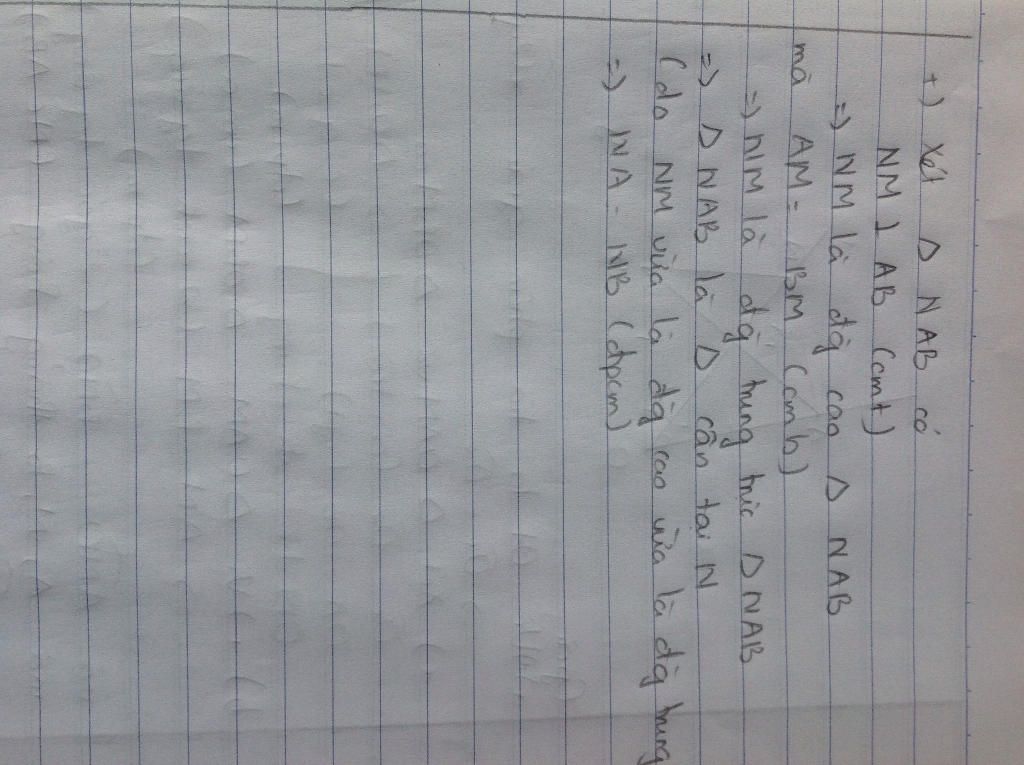 +) Xét Δ NAB có
NM ⊥ AB (cmt)
=) NM là đg cao Δ NAB
mà AM = BM (cmb)
=) NM là đg trung trực Δ NAB
=) Δ NAB là Δ cân tại N
(do NM vừa là đg cao vừa là đg trung
=) NA = NB (đpcm)